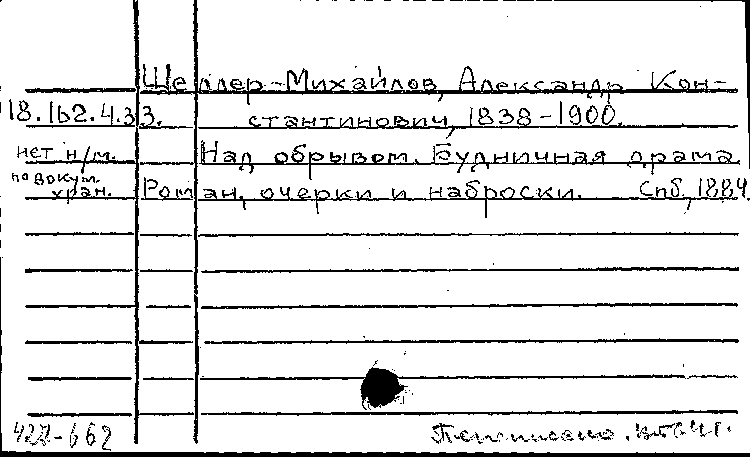 Шеллер-Михайлов, Александр Кон-
18.162.4.33. стантинович, 1838-1900.
нет н/м. Над обрывом. Будничная драма.
по докум. хран. Роман, очерки и наброски. Спб, 1884
422-662 Переписано.